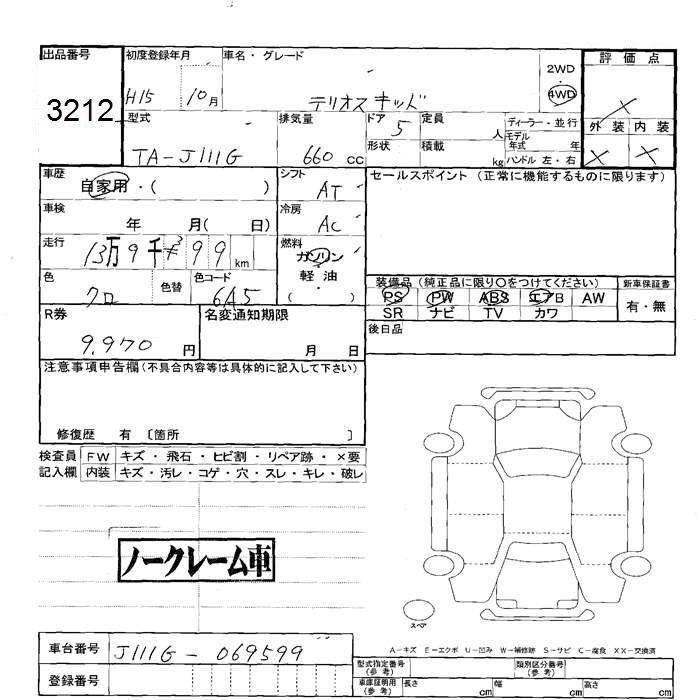 出品番号 初度登録年月 車名・グレード 評価点
3212 H15 10月 テリオスキッド 2WD・4WD ×
型式 排気量 ドア 定員 ディーラー・並行 外装 内装
TA-J111G 660 CC 5 人 モデル年式 年 × ×
形状 積載 kg ハンドル 左・右
車歴 シフト セールスポイント (正常に機能するものに限ります)
自家用・( ) AT
車検 冷房
年 月( 日) AC
走行 燃料
13万9千 99 km ガソリン・軽油・( )
色 色替 色コード 装備品 (純正品に限り○をつけてください) 新車保証書
クロ 6A5 PS PW ABS エアB AW 有・無
SR ナビ TV カワ
R券 名変通知期限 後日品
9,970 円 月 日
注意事項申告欄 (不具合内容等は具体的に記入して下さい)
修復歴 有 〔箇所 〕
検査員 FW キズ・飛石・ヒビ割・リペア跡・×要
記入欄 内装 キズ・汚レ・コゲ・穴・スレ・キレ・破レ
ノークレーム車
スペア
A-キズ E-エクボ U-凹み W-補修跡 S-サビ C-腐食 XX-交換済
車台番号 J111G-069599
型式指定番号 (参考) 類別区分番号 (参考)
登録番号 車庫証明用 (参考) 長さ cm 幅 cm 高さ cm